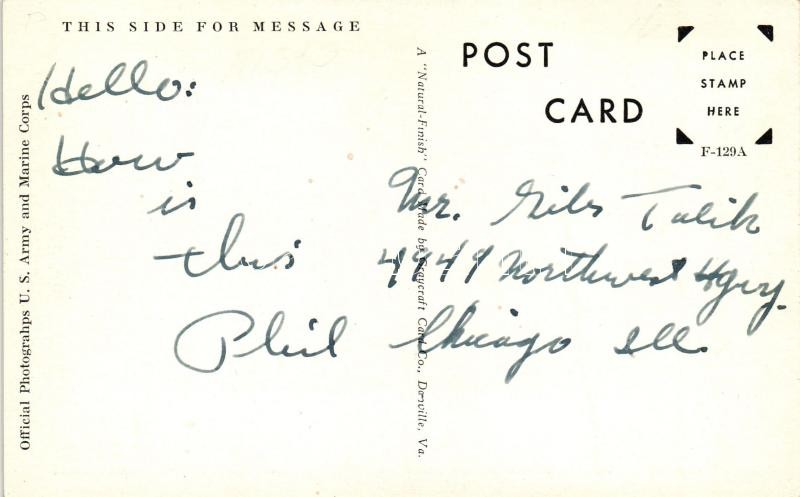 THIS SIDE FOR MESSAGE
Hello:
How
is
this
Phil
Official Photograhps U. S. Army and Marine Corps
A "Natural-Finish" Card Made by Graycraft Card Co., Danville, Va.
POST
CARD
PLACE
STAMP
HERE
F-129A
Mr. Giles Tulik
4949 Northwest Hgwy.
Chicago Ill.